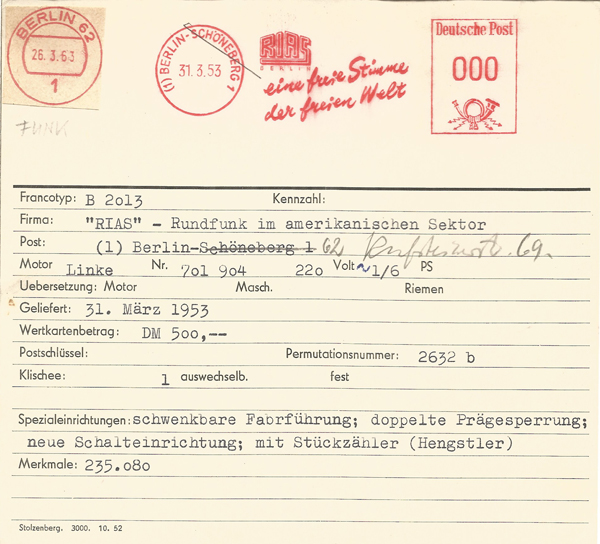 BERLIN 62
26.3.63
1
FUNK
(1) BERLIN-SCHÖNEBERG 1
31.3.53
RIAS
BERLIN
eine freie Stimme
der freien Welt
Deutsche Post
000
Francotyp: B 2o13 Kennzahl:
Firma: "RIAS" - Rundfunk im amerikanischen Sektor
Post: (1) Berlin-Schöneberg 1 62 Kufsteinerstr. 69.
Motor Linke Nr. 7o1 9o4 22o Volt ~1/6 PS
Uebersetzung: Motor Masch. Riemen
Geliefert: 31. März 1953
Wertkartenbetrag: DM 5oo,--
Postschlüssel: Permutationsnummer: 2632 b
Klischee: 1 auswechselb. fest
Spezialeinrichtungen: schwenkbare Fabrführung; doppelte Prägesperrung;
neue Schalteinrichtung; mit Stückzähler (Hengstler)
Merkmale: 235.o8o
Stolzenberg. 3000. 10. 52